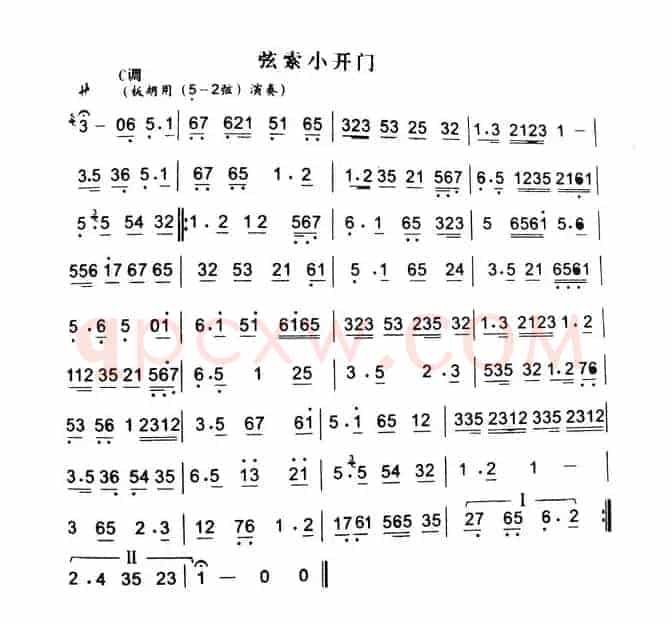 弦索小开门
C调
サ (板胡用（5-2弦）演奏)
3 - 06 5.1 | 67 621 51 65 | 323 53 25 32 | 1.3 2123 1 - |
3.5 36 5.1 | 67 65 1.2 | 1.2 35 21 567 | 6.5 1235 2161 |
5.5 54 32 ‖: 1.2 12 567 | 6.1 65 323 | 5 6561 5.6 |
556 17 67 65 | 32 53 21 61 | 5.1 65 24 | 3.5 21 6561 |
5.6 5 01 | 6.1 51 6165 | 323 53 235 32 | 1.3 2123 1.2 |
112 35 21 567 | 6.5 1 25 | 3.5 2.3 | 535 32 1.2 76 |
53 56 1 2312 | 3.5 67 61 | 5.1 65 12 | 335 2312 335 2312 |
3.5 36 54 35 | 6.5 13 21 | 5.5 54 32 | 1.2 1 - |
3 65 2.3 | 12 76 1.2 | 1761 565 35 | I 27 65 6.2 :‖
II 2.4 35 23 | 1 - 0 0 ‖
qpcxw.com